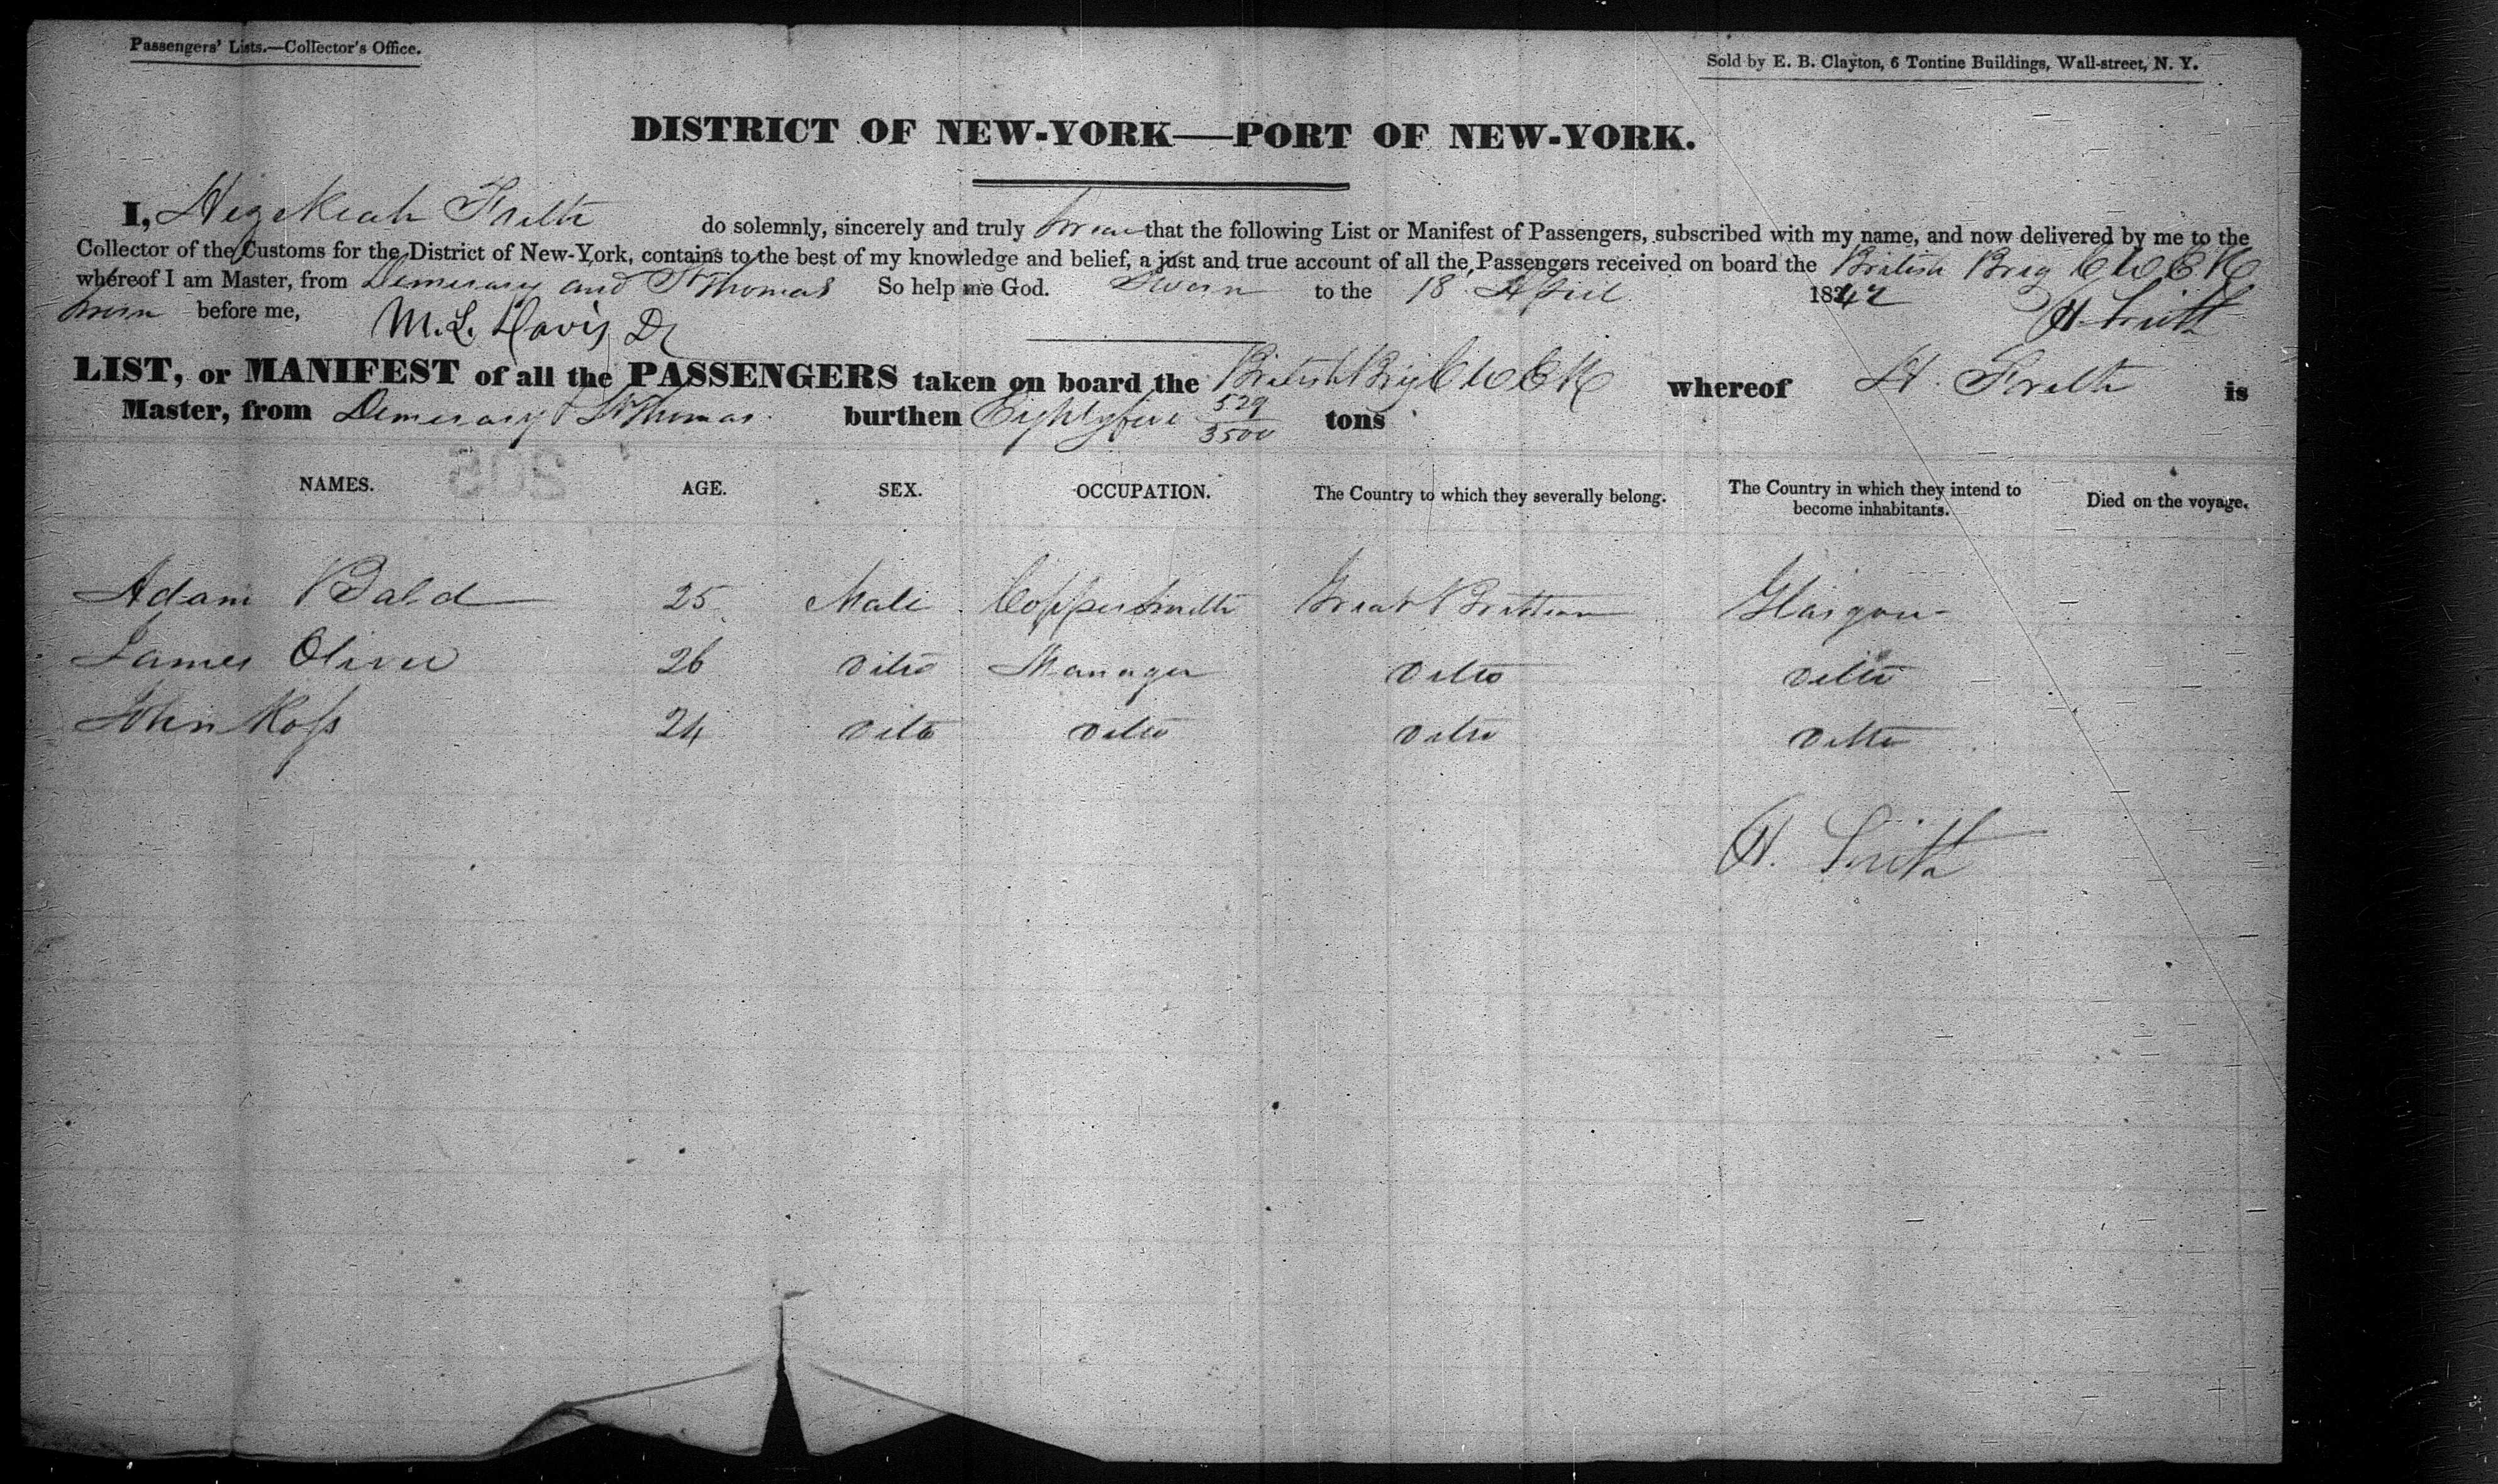 Passengers' Lists.—Collector's Office.
Sold by E. B. Clayton, 6 Tontine Buildings, Wall-street, N. Y.
DISTRICT OF NEW-YORK—PORT OF NEW-YORK.
I, Hezekiah Frith do solemnly, sincerely and truly swear that the following List or Manifest of Passengers, subscribed with my name, and now delivered by me to the
Collector of the Customs for the District of New-York, contains to the best of my knowledge and belief, a just and true account of all the Passengers received on board the British Brig
whereof I am Master, from Demerary and St Thomas So help me God. Sworn to the 18 April 1842
Sworn before me, M. L. Davis, H Frith
LIST, or MANIFEST of all the PASSENGERS taken on board the British Brig whereof H. Frith is
Master, from Demerary & St Thomas burthen Eightyfive 529/3500 tons
205
NAMES. AGE. SEX. OCCUPATION. The Country to which they severally belong. The Country in which they intend to become inhabitants. Died on the voyage.
Adam Bald 25 Male Coppersmith Great Brittian Glasgow
James Oliver 26 Ditto Manager Ditto Ditto
John Ross 24 Ditto Ditto Ditto Ditto
H. Frith